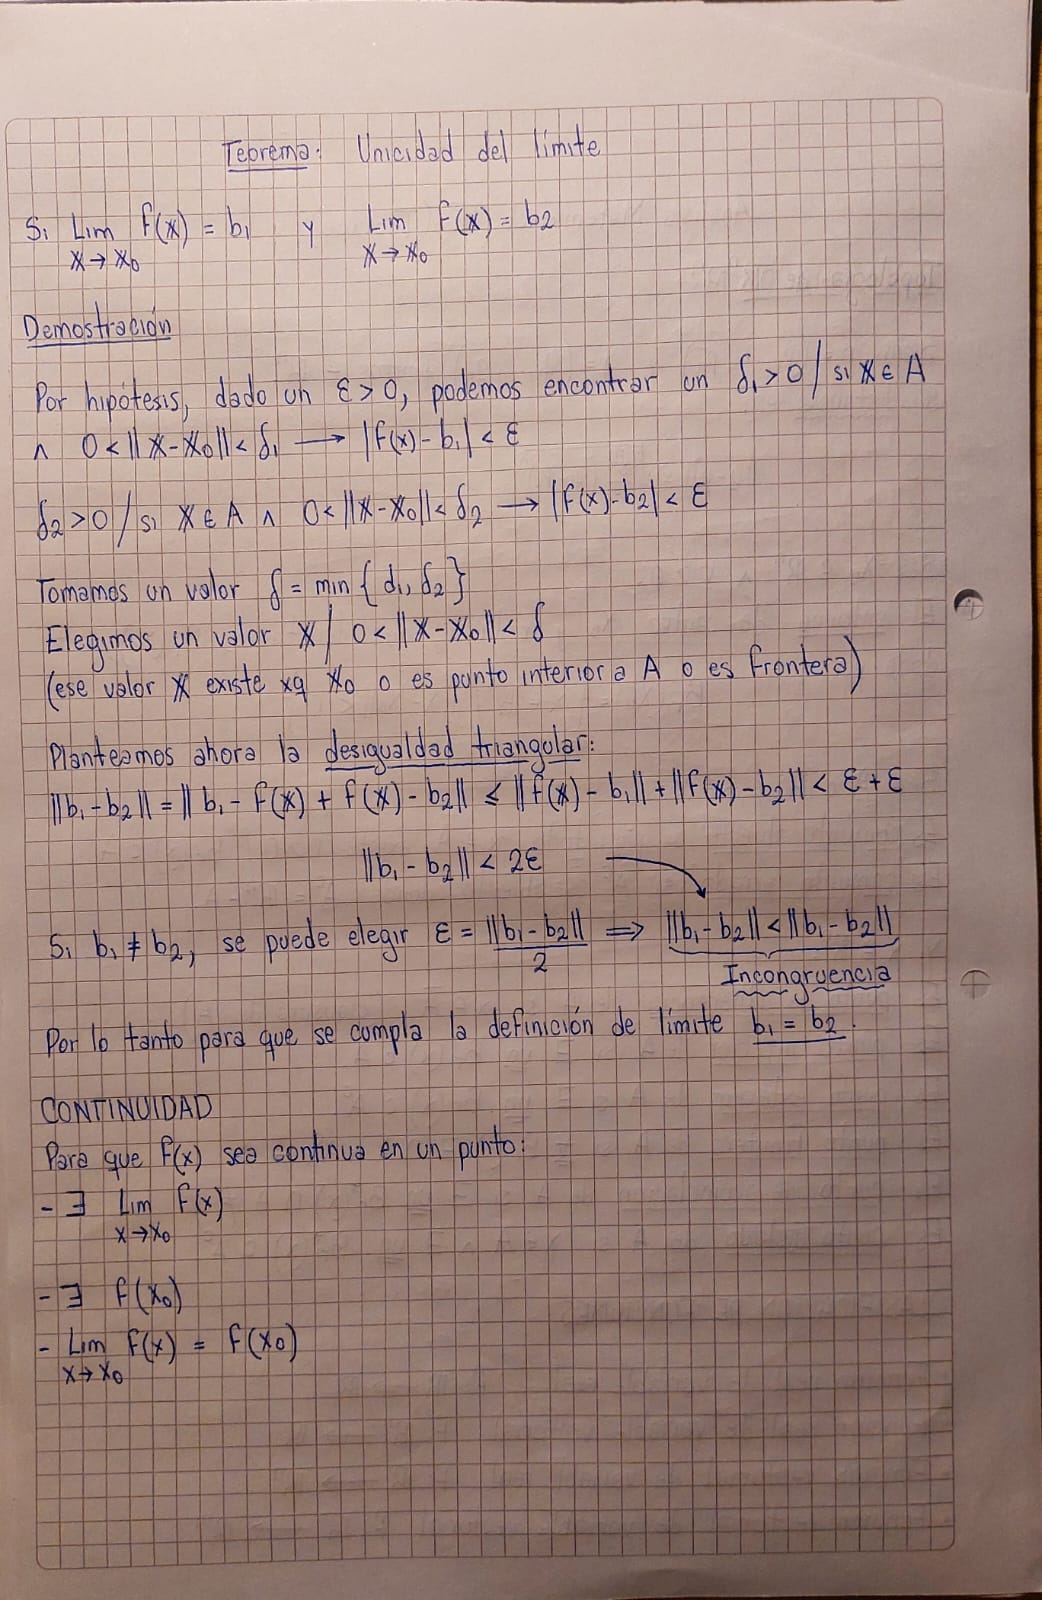 Teorema: Unicidad del límite
Si Lim f(x) = b₁ y Lim f(x) = b₂
x→x₀ x→x₀
Demostración
Por hipótesis, dado un ε > 0, podemos encontrar un δ₁ > 0 / si x ∈ A
∧ 0 < ||x - x₀|| < δ₁ → |f(x) - b₁| < ε
δ₂ > 0 / si x ∈ A ∧ 0 < ||x - x₀|| < δ₂ → |f(x) - b₂| < ε
Tomamos un valor δ = min {d₁, δ₂}
Elegimos un valor x / 0 < ||x - x₀|| < δ
(ese valor x existe xq x₀ o es punto interior a A o es frontera)
Planteamos ahora la desigualdad triangular:
||b₁ - b₂|| = || b₁ - f(x) + f(x) - b₂|| ≤ ||f(x) - b₁|| + ||f(x) - b₂|| < ε + ε
||b₁ - b₂|| < 2ε
Si b₁ ≠ b₂, se puede elegir ε = ||b₁ - b₂|| ⟹ ||b₁ - b₂|| < ||b₁ - b₂||
2
Incongruencia
Por lo tanto para que se cumpla la definición de límite b₁ = b₂.
CONTINUIDAD
Para que f(x) sea continua en un punto:
- ∃ Lim f(x)
x→x₀
- ∃ f(x₀)
- Lim f(x) = f(x₀)
x→x₀